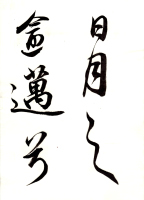 日月之
逾邁兮